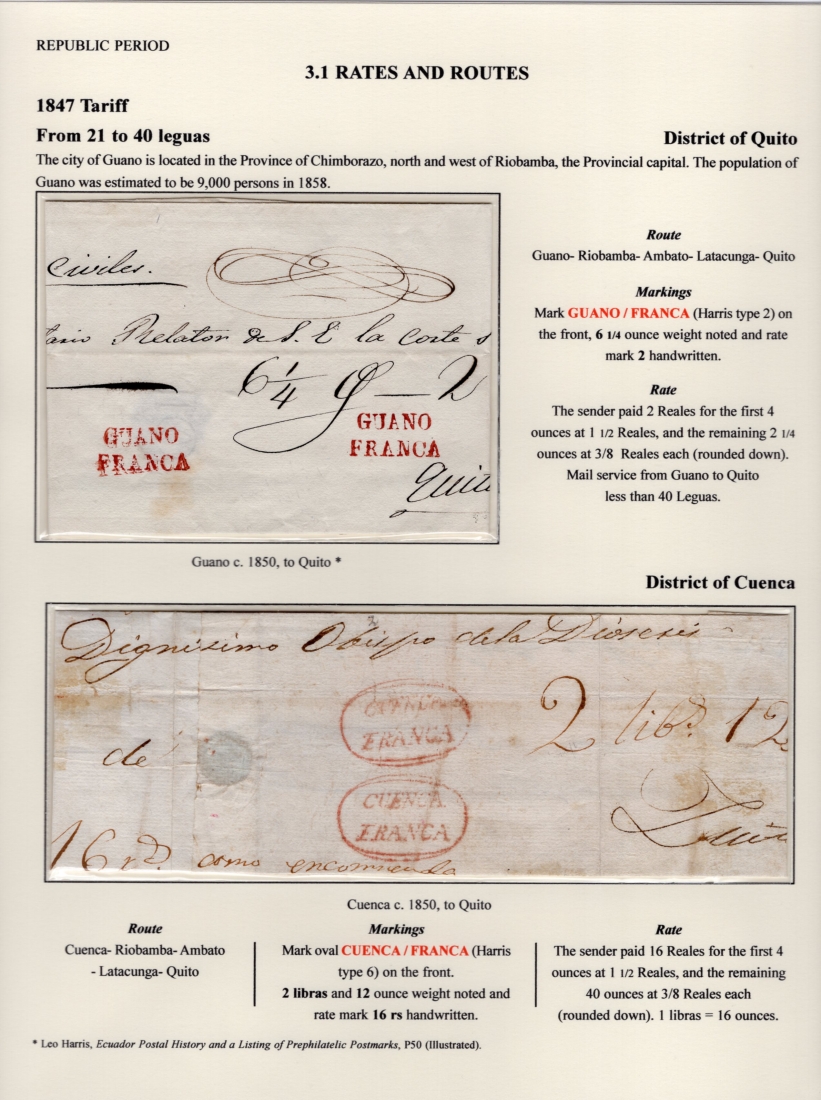 REPUBLIC PERIOD
3.1 RATES AND ROUTES
1847 Tariff
From 21 to 40 leguas
District of Quito
The city of Guano is located in the Province of Chimborazo, north and west of Riobamba, the Provincial capital. The population of
Guano was estimated to be 9,000 persons in 1858.
Civiles.
Relator de S. E la Corte s
6 1/4 — 2
GUANO
FRANCA
GUANO
FRANCA
Quito
Guano c. 1850, to Quito *
Route
Guano- Riobamba- Ambato- Latacunga- Quito
Markings
Mark GUANO / FRANCA (Harris type 2) on
the front, 6 1/4 ounce weight noted and rate
mark 2 handwritten.
Rate
The sender paid 2 Reales for the first 4
ounces at 1 1/2 Reales, and the remaining 2 1/4
ounces at 3/8 Reales each (rounded down).
Mail service from Guano to Quito
less than 40 Leguas.
District of Cuenca
Dignisimo Obispo de la Diosesis
de
CUENCA
FRANCA
2 libs 12
CUENCA
FRANCA
Quito
16 rs como encomienda
Cuenca c. 1850, to Quito
Route
Cuenca- Riobamba- Ambato
- Latacunga- Quito
Markings
Mark oval CUENCA / FRANCA (Harris
type 6) on the front.
2 libras and 12 ounce weight noted and
rate mark 16 rs handwritten.
Rate
The sender paid 16 Reales for the first 4
ounces at 1 1/2 Reales, and the remaining
40 ounces at 3/8 Reales each
(rounded down). 1 libras = 16 ounces.
* Leo Harris, Ecuador Postal History and a Listing of Prephilatelic Postmarks, P50 (Illustrated).